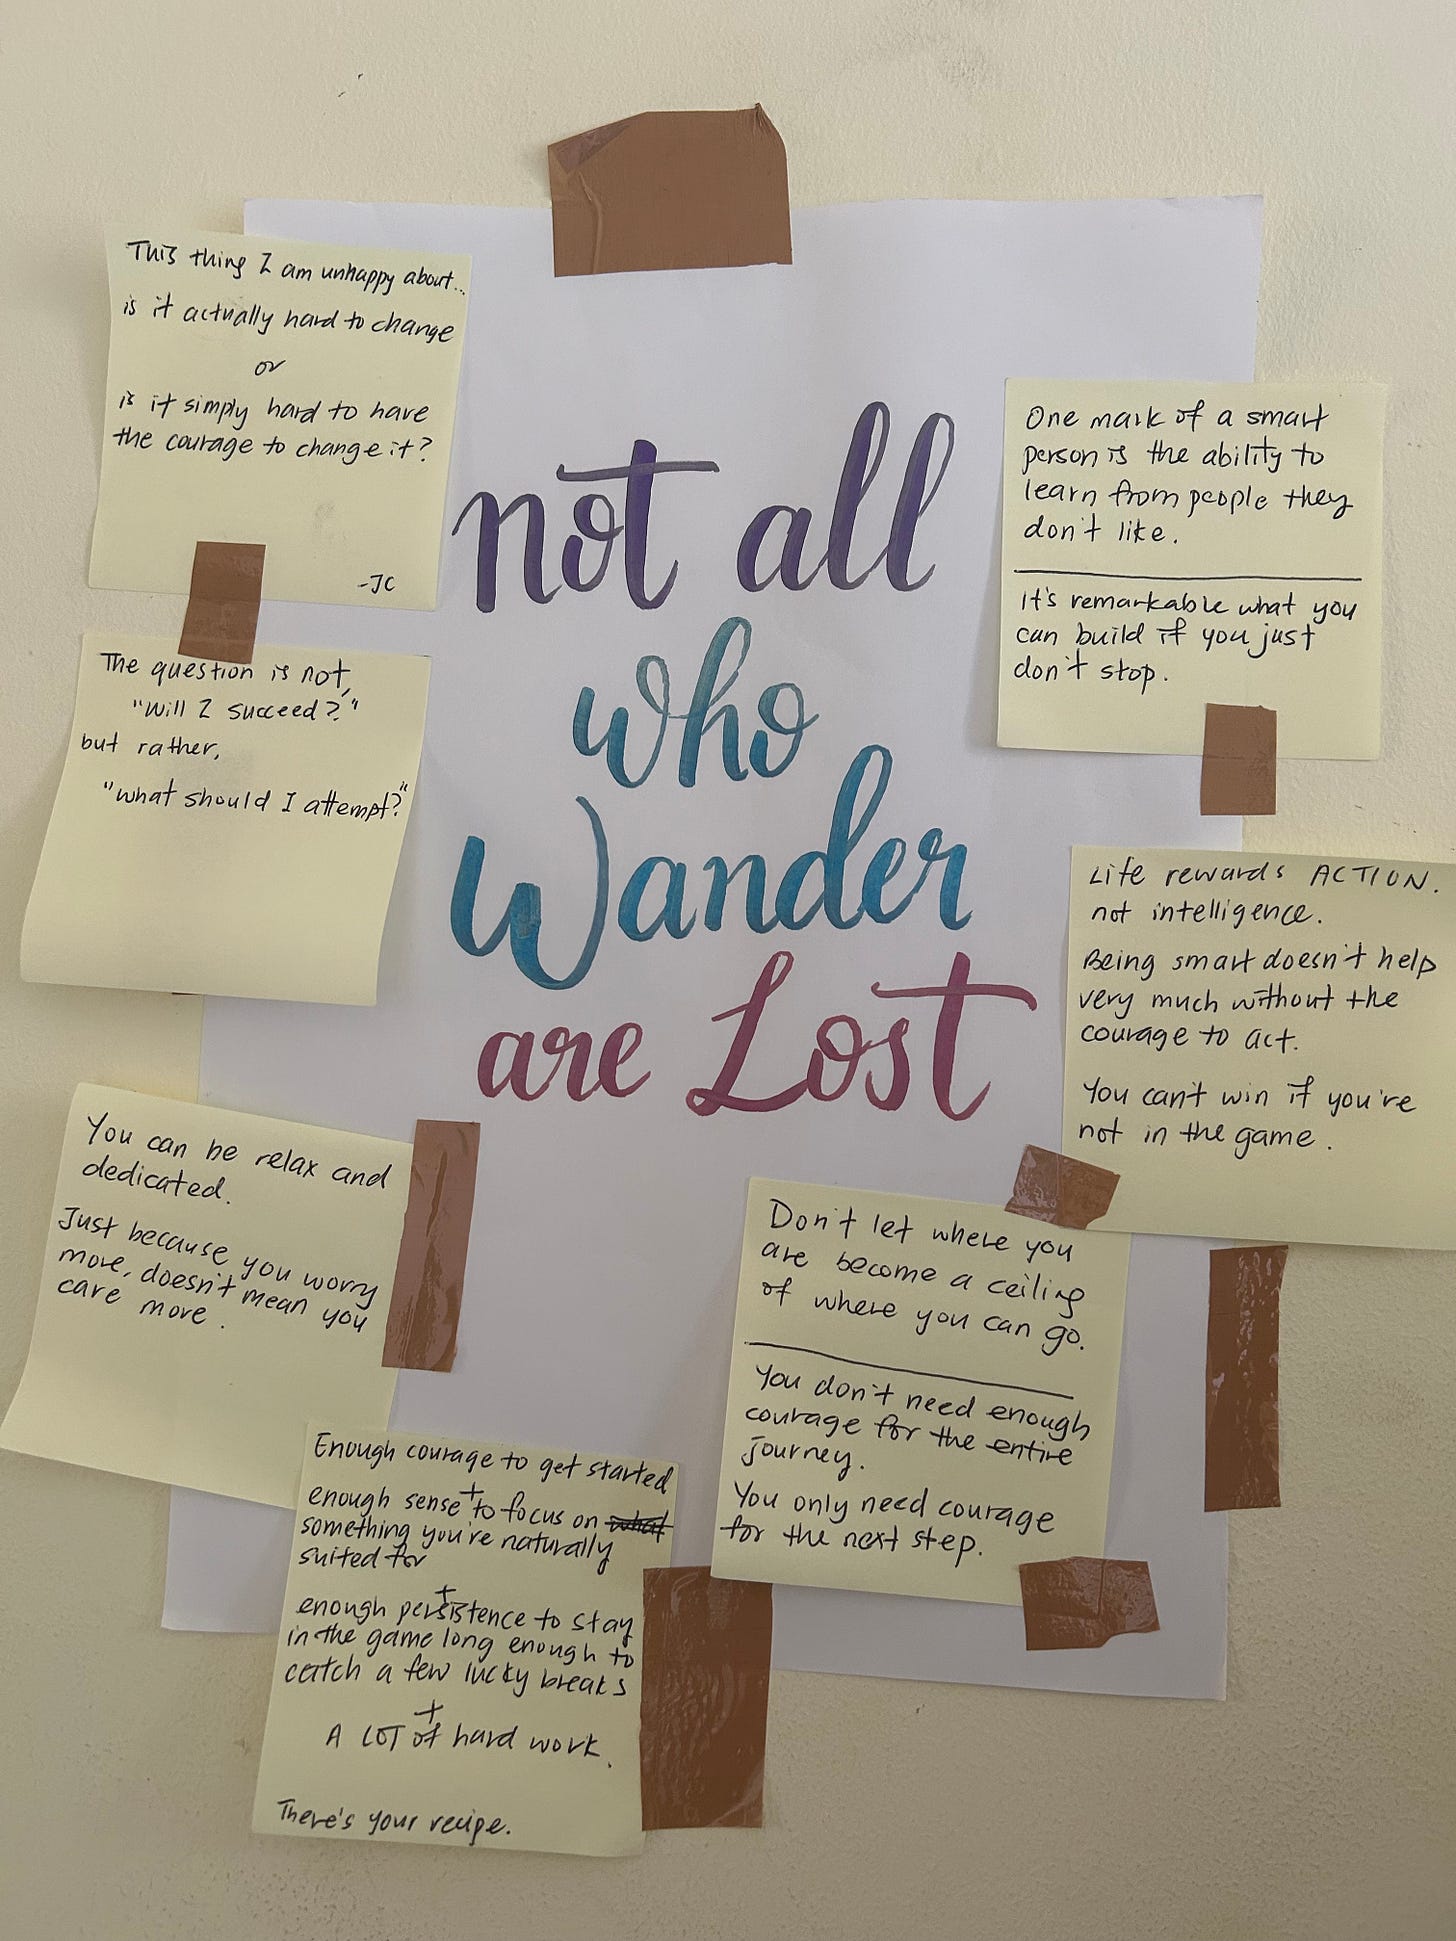 This thing I am unhappy about...
is it actually hard to change
or
is it simply hard to have
the courage to change it?
-JC
The question is not,
"Will I succeed?"
but rather,
"what should I attempt?"
You can be relax and
dedicated.
Just because you worry
more, doesn't mean you
care more.
Enough courage to get started
+
enough sense to focus on
something you're naturally
suited for
+
enough persistence to stay
in the game long enough to
catch a few lucky breaks
+
A LOT of hard work.
There's your recipe.
not all
who
Wander
are Lost
One mark of a smart
person is the ability to
learn from people they
don't like.
It's remarkable what you
can build if you just
don't stop.
Life rewards ACTION.
not intelligence.
Being smart doesn't help
very much without the
courage to act.
You can't win if you're
not in the game.
Don't let where you
are become a ceiling
of where you can go.
You don't need enough
courage for the entire
journey.
You only need courage
for the next step.